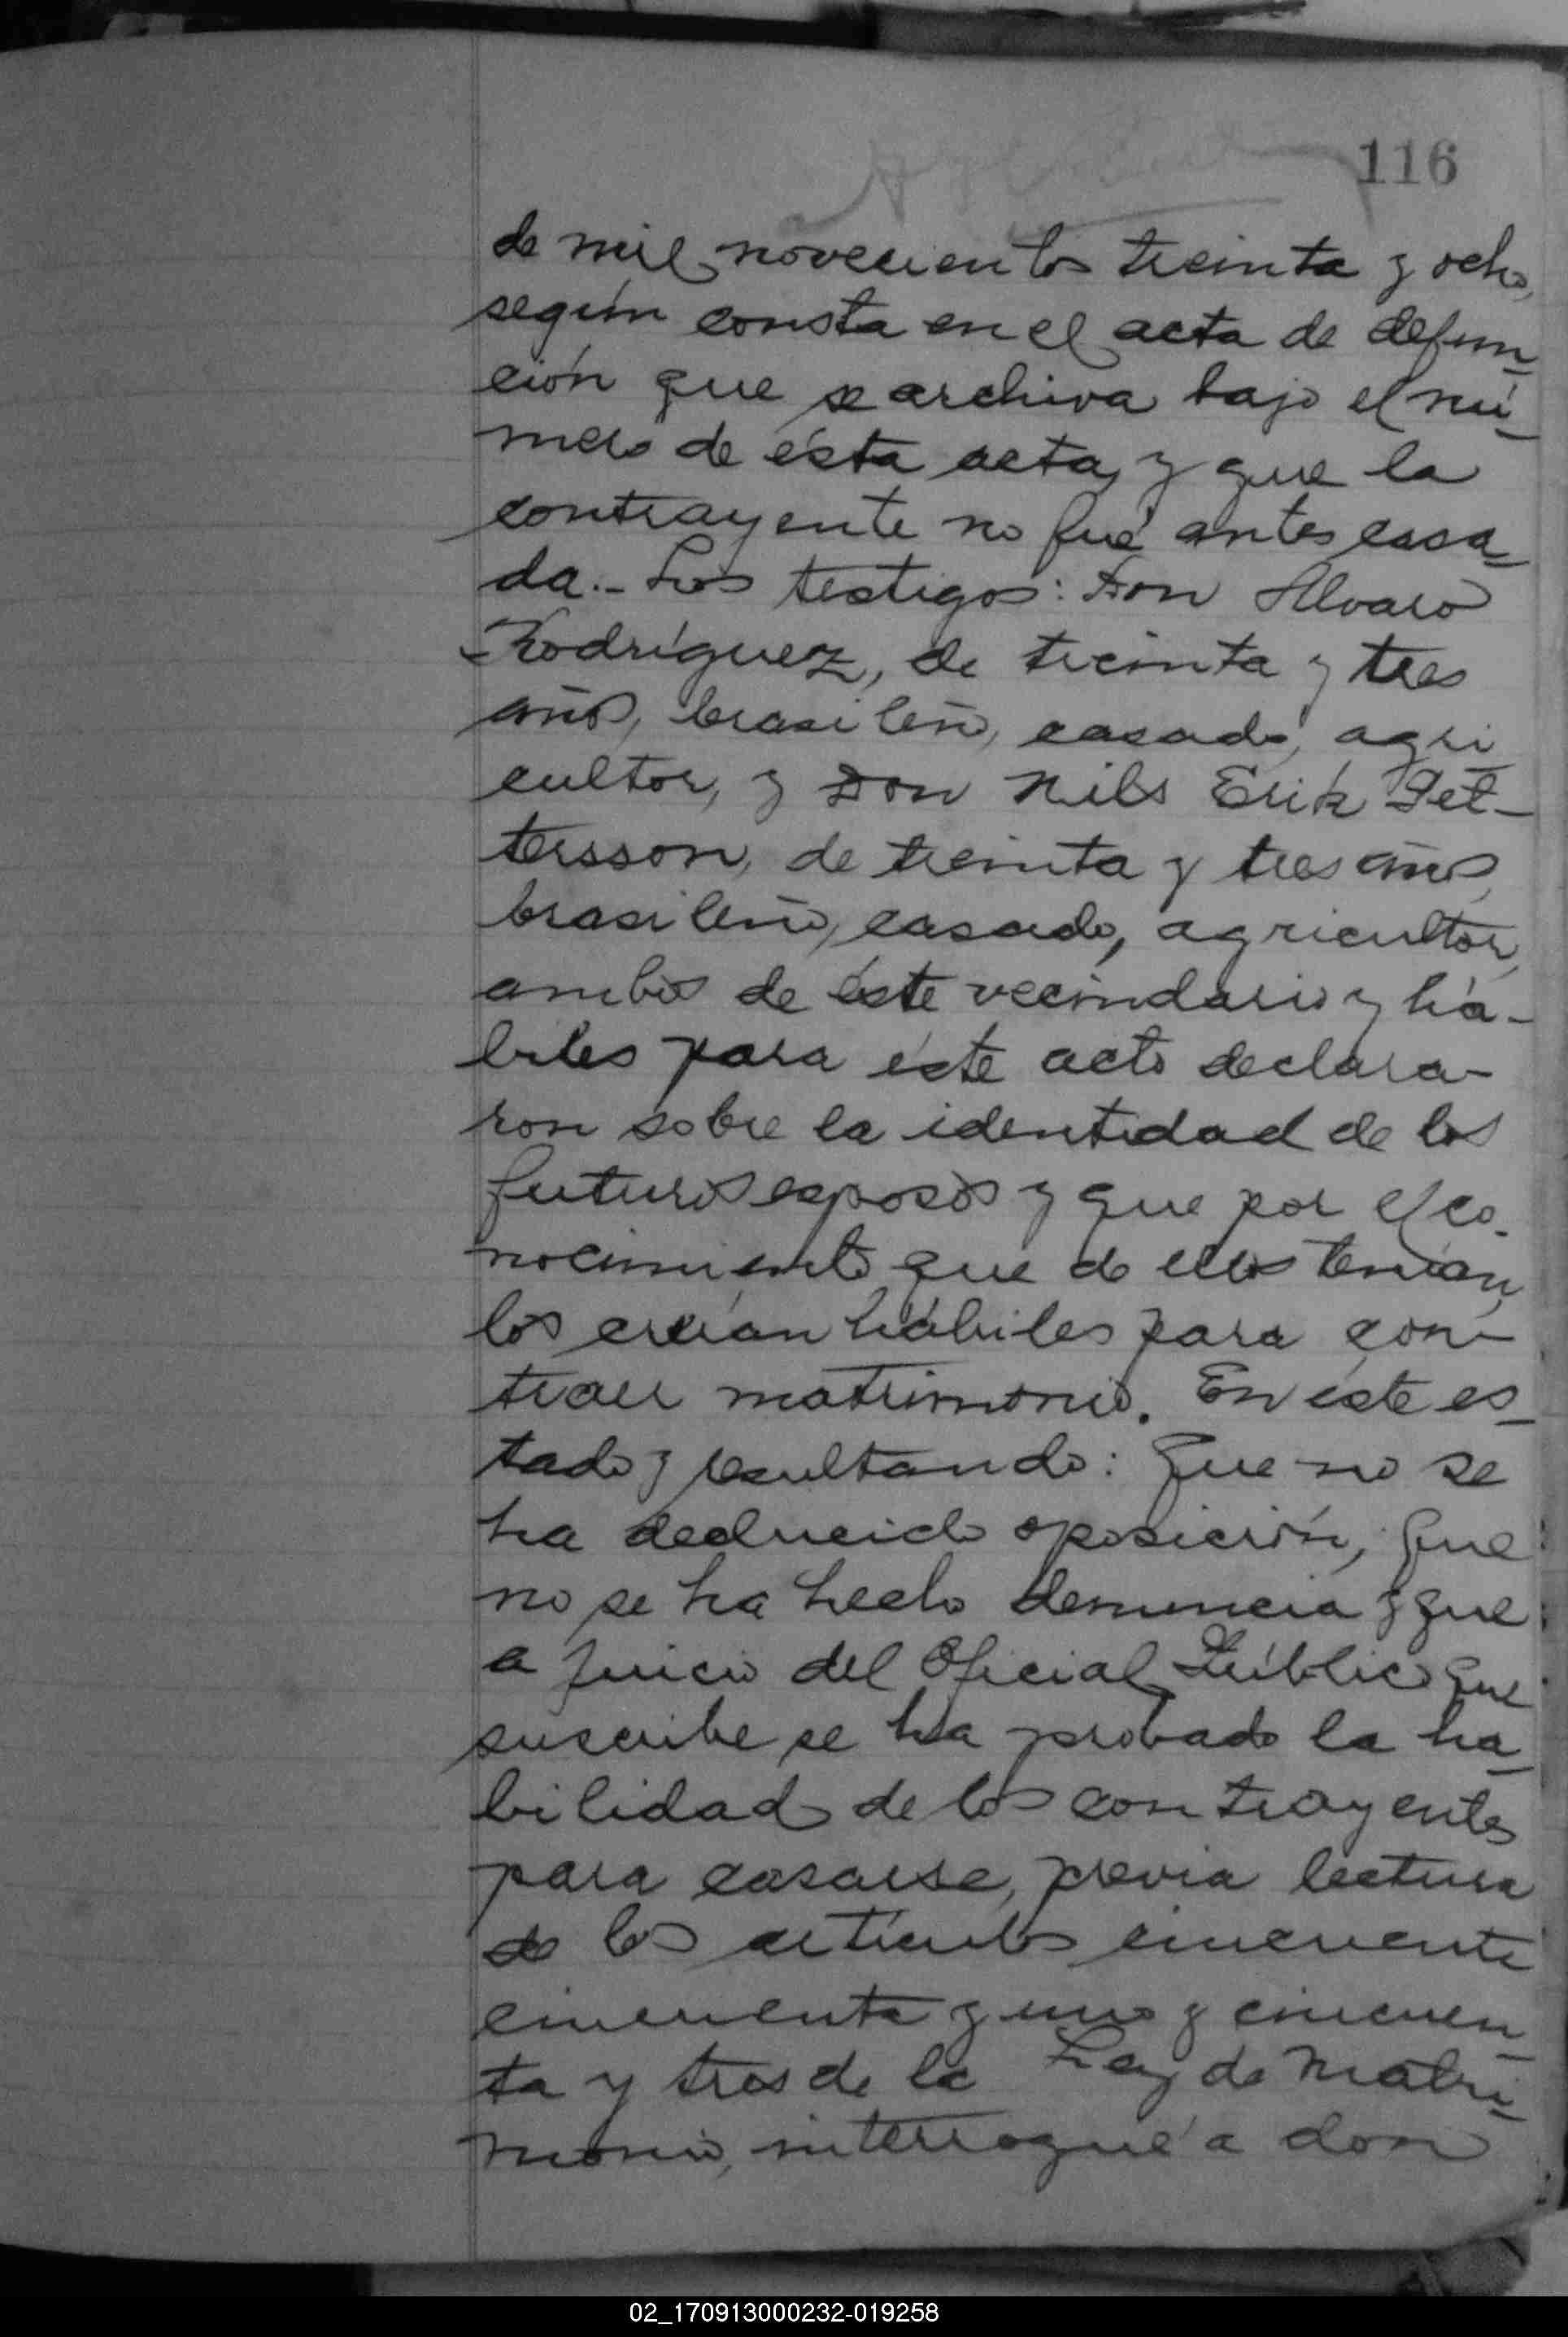 116
de mil novecientos treinta y ocho,
según consta en el acta de defun_
ción que se archiva bajo el nú_
mero de ésta acta, y que la
contrayente no fué antes casa_
da.- Los testigos: Don Alvaro
Rodríguez, de treinta y tres
años, brasileño, casado, agri_
cultor, y Don Nils Erik Pet-
tersson, de treinta y tres años,
brasileño, casado, agricultor,
ambos de éste vecindario y há-
biles para éste acto declara-
ron sobre la identidad de los
futuros esposos y que por el co-
nocimiento que de ellos tenían,
los creían hábiles para con-
traer matrimonio. En éste es_
tado y resultando: Que no se
ha deducido oposición, que
no se ha hecho denuncia y que
a juicio del Oficial Público que
suscribe se ha probado la ha_
bilidad de los contrayentes
para casarse, previa lectura
de los artículos cincuenta
cincuenta y uno y cincuen_
ta y tres de la Ley de Matri_
monio, interrogué a don
02_170913000232-019258